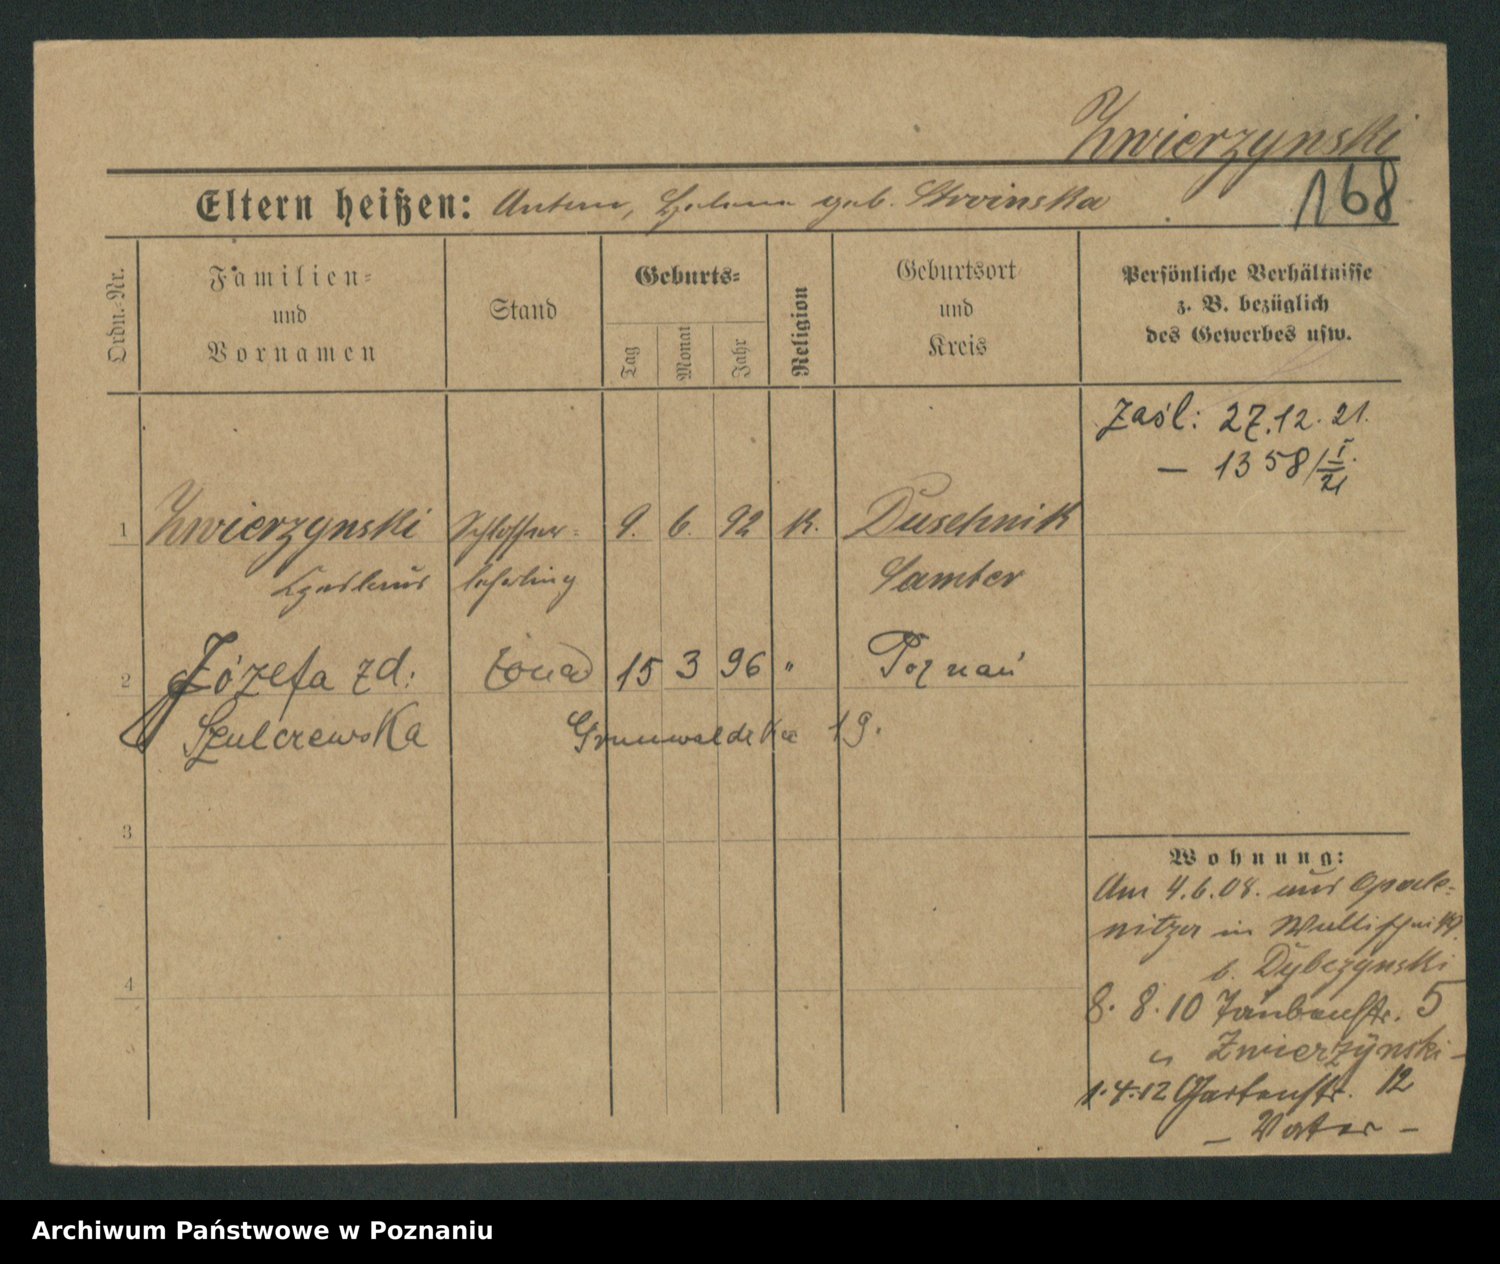 Zwierzynski
168
Eltern heißen: Anton, Helena geb. Stroinska
Ordn.-Nr.
Familien-
und
Vornamen
Stand
Geburts-
Tag
Monat
Jahr
Religion
Geburtsort
und
Kreis
Persönliche Verhältnisse
z. B. bezüglich
des Gewerbes usw.
zaśl: 27.12.21.
— 1358/I/21
1 Zwierzynski Schlosser- 9. 6. 92 K. Duschnik
lehrling Samter
2 Józefa zd: żona 15 3 96 " Poznań
Szulczewska Grunwaldzka 19.
3
4
5
Wohnung:
Am 4.6.08. aus Opale-
nitza in
b. Dybczynski
8. 8. 10 Taubenstr. 5
Zwierzynski-
1.4.12 Gartenstr. 12
- Vater -
Archiwum Państwowe w Poznaniu